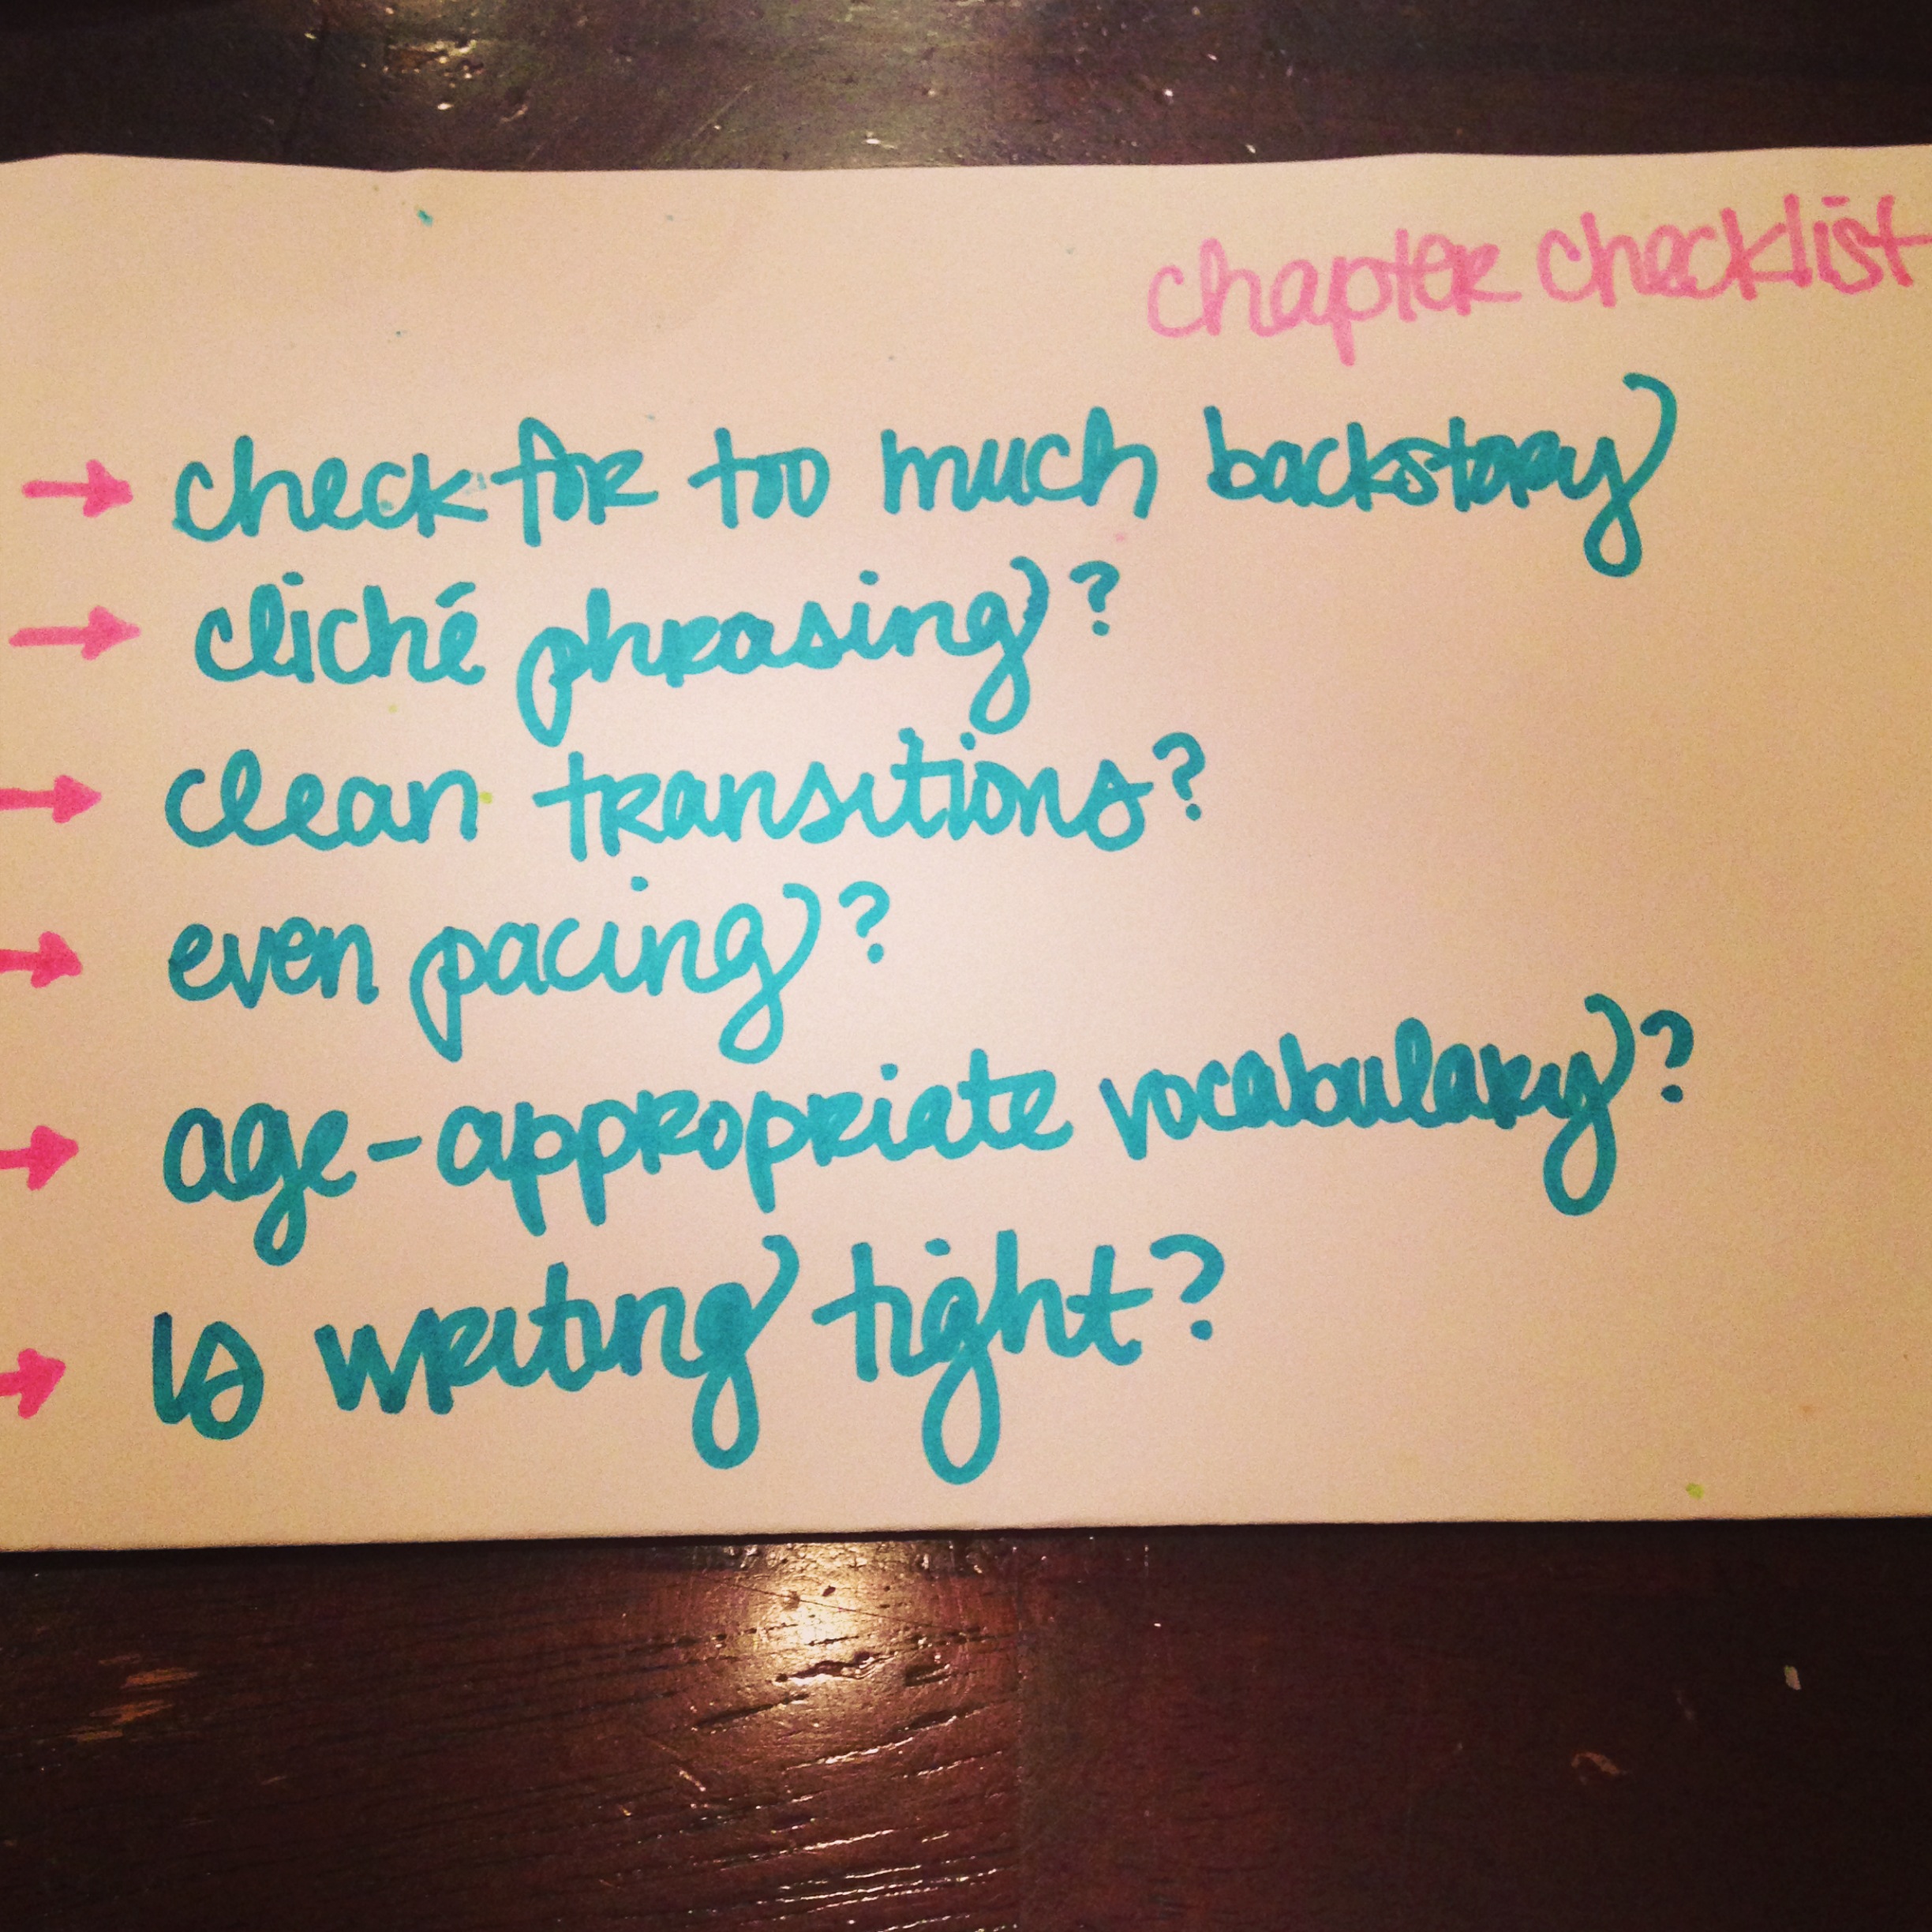 chapter checklist
→ check for too much backstory
→ cliché phrasing?
→ clean transitions?
→ even pacing?
→ age-appropriate vocabulary?
→ is writing tight?